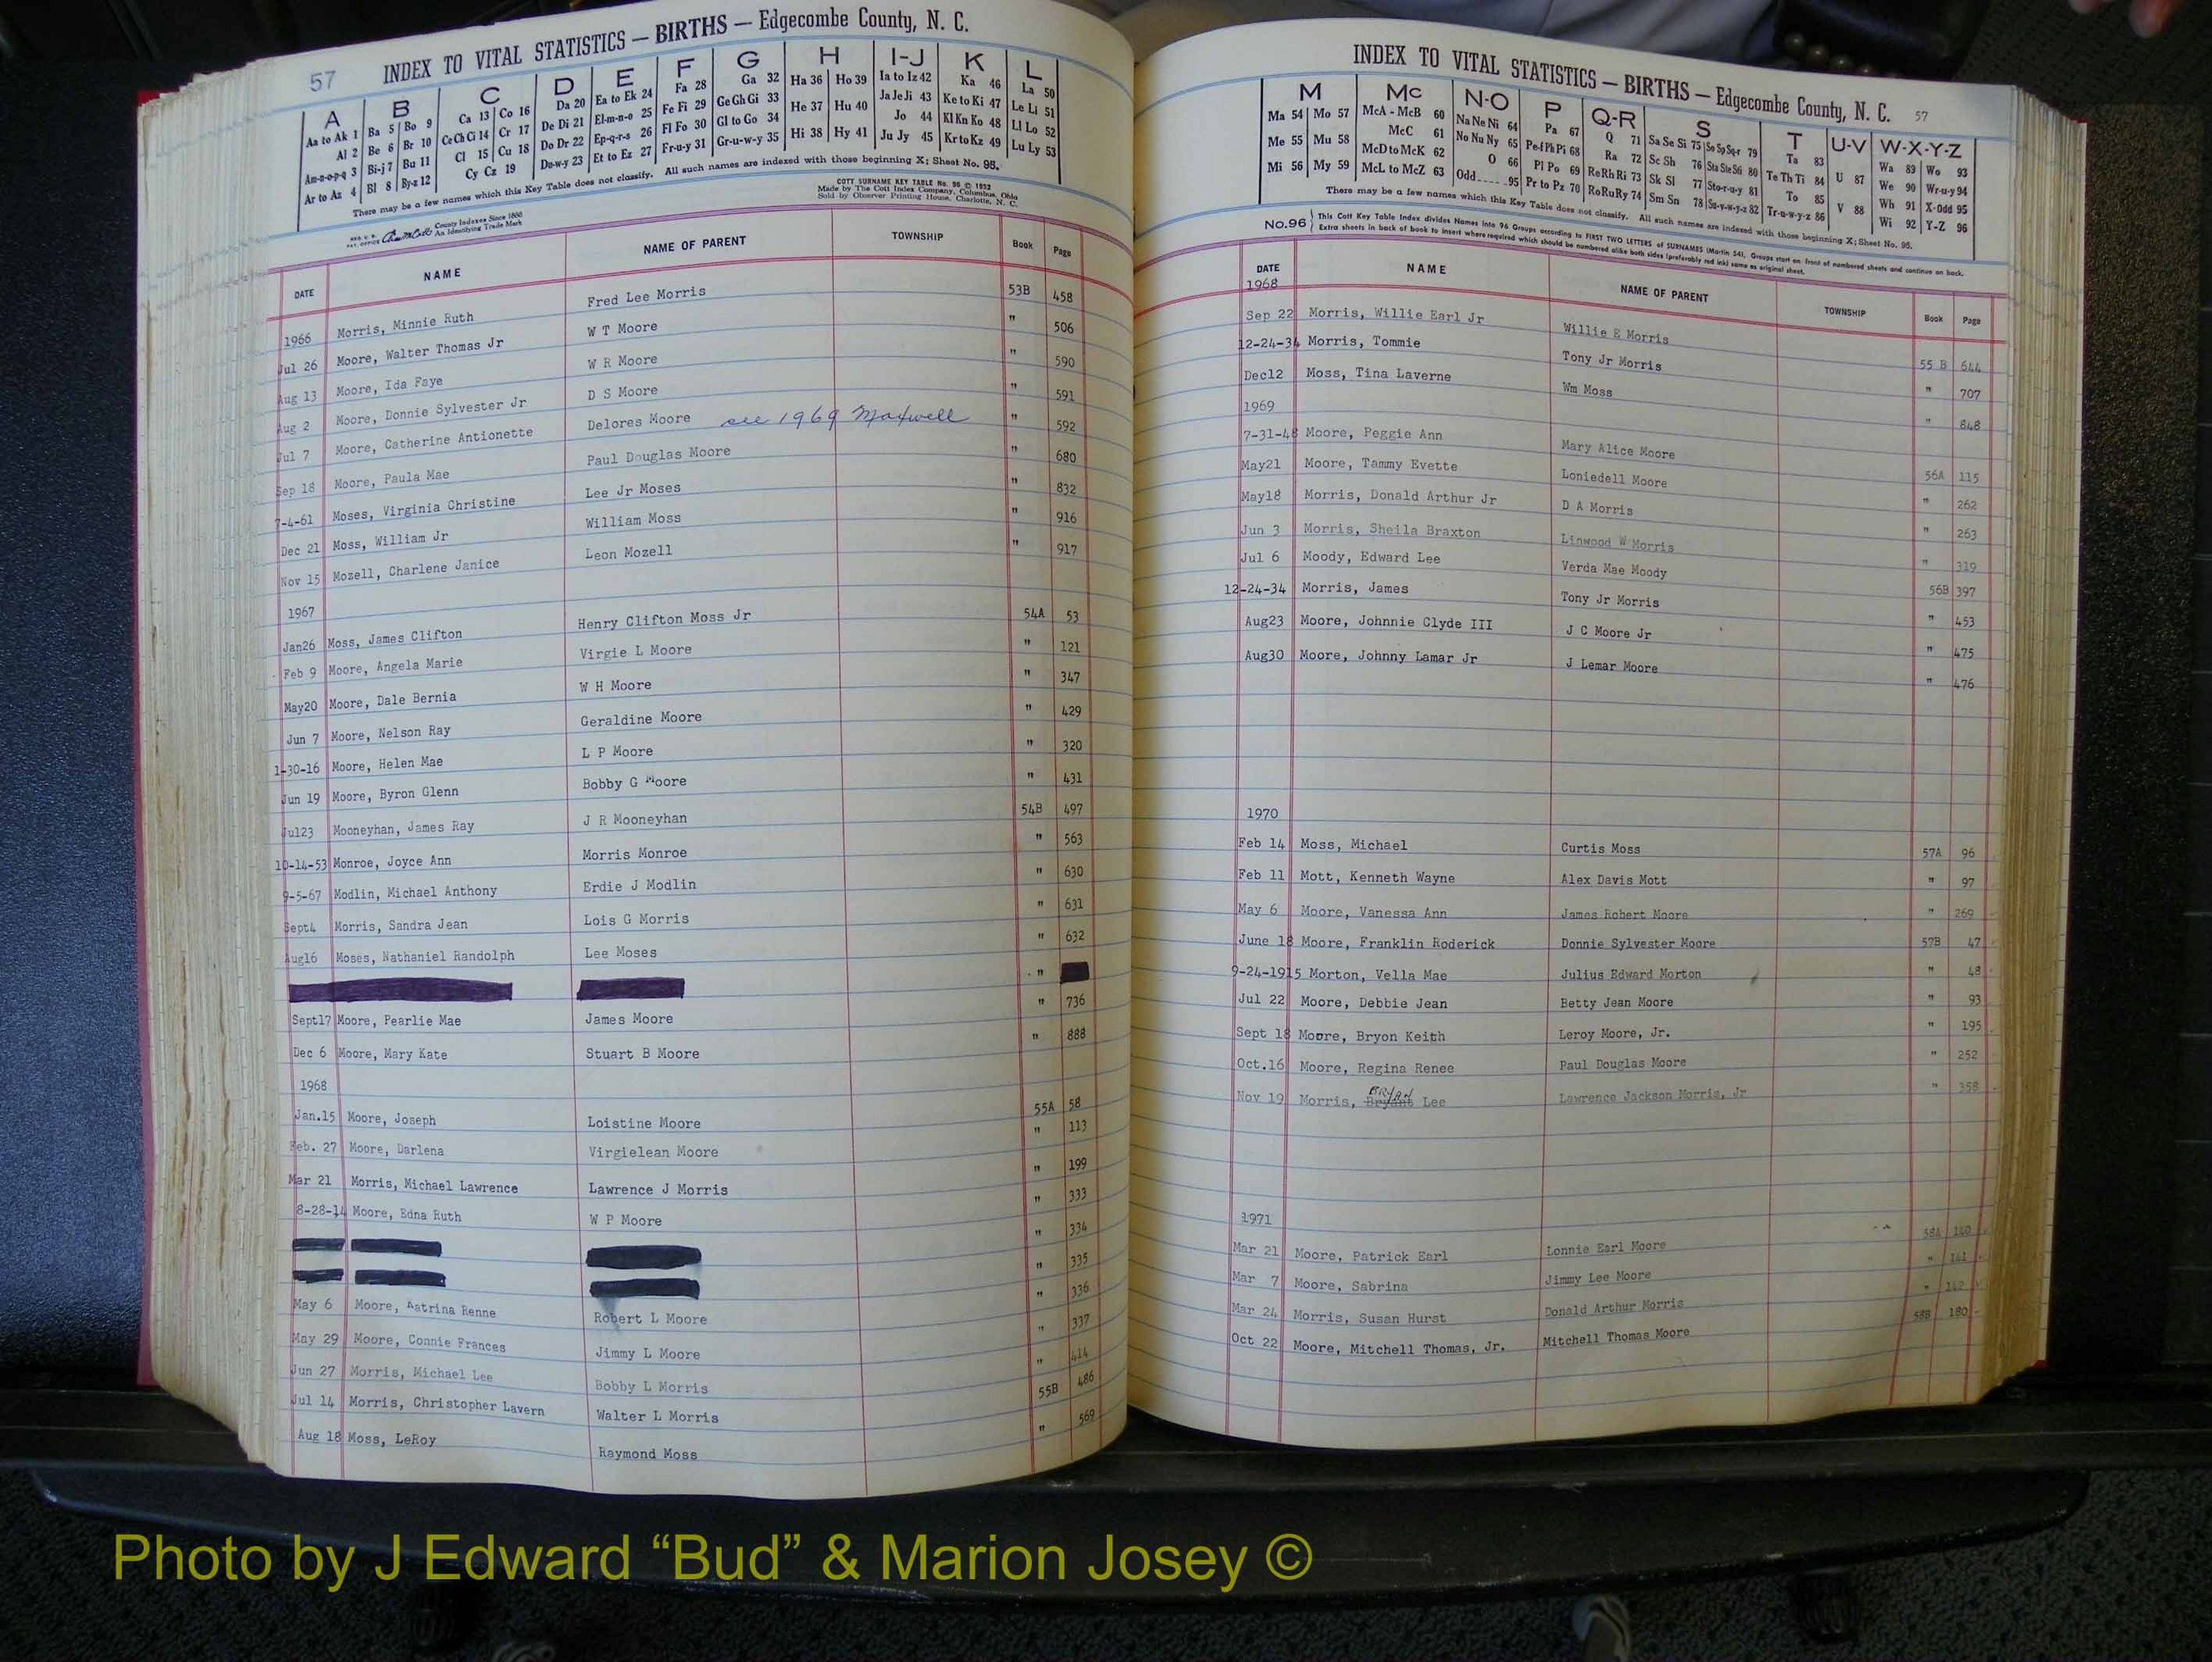 57 INDEX TO VITAL STATISTICS — BIRTHS — Edgecombe County, N. C.
A B C D E F G H I-J K L
Aa to Ak 1 Ba 5 Bo 9 Ca 13 Co 16 Da 20 Ea to Ek 24 Fa 28 Ga 32 Ha 36 Ho 39 Ia to Iz 42 Ka 46 La 50
Al 2 Be 6 Br 10 Ce Ch Ci 14 Cr 17 De Di 21 El-m-n-o 25 Fe Fi 29 Ge Gh Gi 33 He 37 Hu 40 Ja Je Ji 43 Ke to Ki 47 Le Li 51
Am-n-o-p-q 3 Bi-j 7 Bu 11 Cl 15 Cu 18 Do Dr 22 Ep-q-r-s 26 Fl Fo 30 Gl to Go 34 Hi 38 Hy 41 Jo 44 Kl Kn Ko 48 Ll Lo 52
Ar to Az 4 Bl 8 By-z 12 Cy Cz 19 Du-w-y 23 Et to Ez 27 Fr-u-y 31 Gr-u-w-y 35 Ju Jy 45 Kr to Kz 49 Lu Ly 53
There may be a few names which this Key Table does not classify. All such names are indexed with those beginning X; Sheet No. 95.
County Indexes Since 1888
An Identifying Trade Mark
COTT SURNAME KEY TABLE No. 96 © 1952
Made by The Cott Index Company, Columbus, Ohio
Sold by Observer Printing House, Charlotte, N. C.
DATE NAME NAME OF PARENT TOWNSHIP Book Page
1966 Morris, Minnie Ruth Fred Lee Morris 53B 458
Jul 26 Moore, Walter Thomas Jr W T Moore " 506
Aug 13 Moore, Ida Faye W R Moore " 590
Aug 2 Moore, Donnie Sylvester Jr D S Moore " 591
Jul 7 Moore, Catherine Antionette Delores Moore see 1969 Maxwell " 592
Sep 18 Moore, Paula Mae Paul Douglas Moore " 680
7-4-61 Moses, Virginia Christine Lee Jr Moses " 832
Dec 21 Moss, William Jr William Moss " 916
Nov 15 Mozell, Charlene Janice Leon Mozell " 917
1967
Jan26 Moss, James Clifton Henry Clifton Moss Jr 54A 53
Feb 9 Moore, Angela Marie Virgie L Moore " 121
May20 Moore, Dale Bernia W H Moore " 347
Jun 7 Moore, Nelson Ray Geraldine Moore " 429
1-30-16 Moore, Helen Mae L P Moore " 320
Jun 19 Moore, Byron Glenn Bobby G Moore " 431
Jul23 Mooneyhan, James Ray J R Mooneyhan 54B 497
10-14-53 Monroe, Joyce Ann Morris Monroe " 563
9-5-67 Modlin, Michael Anthony Erdie J Modlin " 630
Sept4 Morris, Sandra Jean Lois G Morris " 631
Aug16 Moses, Nathaniel Randolph Lee Moses " 632
"
Sept17 Moore, Pearlie Mae James Moore " 736
Dec 6 Moore, Mary Kate Stuart B Moore " 888
1968
Jan.15 Moore, Joseph Loistine Moore 55A 58
Feb. 27 Moore, Darlena Virgielean Moore " 113
Mar 21 Morris, Michael Lawrence Lawrence J Morris " 199
8-28-14 Moore, Edna Ruth W P Moore " 333
" 334
" 335
May 6 Moore, Katrina Renne Robert L Moore " 336
May 29 Moore, Connie Frances Jimmy L Moore " 337
Jun 27 Morris, Michael Lee Bobby L Morris " 414
Jul 14 Morris, Christopher Lavern Walter L Morris 55B 486
Aug 18 Moss, LeRoy Raymond Moss " 569
INDEX TO VITAL STATISTICS — BIRTHS — Edgecombe County, N. C. 57
M Mc N-O P Q-R S T U-V W-X-Y-Z
Ma 54 Mo 57 McA - McB 60 Na Ne Ni 64 Pa 67 Q 71 Sa Se Si 75 So Sp Sq-r 79 Ta 83 U 87 Wa 89 Wo 93
Me 55 Mu 58 McC 61 No Nu Ny 65 Pe-f Ph Pi 68 Ra 72 Sc Sh 76 Sta Ste Sti 80 Te Th Ti 84 We 90 Wr-u-y 94
Mi 56 My 59 McD to McK 62 O 66 Pl Po 69 Re Rh Ri 73 Sk Sl 77 Sto-r-u-y 81 To 85 V 88 Wh 91 X-Odd 95
McL to McZ 63 Odd 95 Pr to Pz 70 Ro Ru Ry 74 Sm Sn 78 Su-v-w-y-z 82 Tr-u-w-y-z 86 Wi 92 Y-Z 96
There may be a few names which this Key Table does not classify. All such names are indexed with those beginning X; Sheet No. 95.
No. 96 This Cott Key Table Index divides Names into 96 Groups according to FIRST TWO LETTERS of SURNAMES (Martin 54). Groups start on front of numbered sheets and continue on back.
Extra sheets in back of book to insert where required which should be numbered alike both sides (preferably red ink) same as original sheet.
DATE NAME NAME OF PARENT TOWNSHIP Book Page
1968
Sep 22 Morris, Willie Earl Jr Willie E Morris 55 B 644
12-24-34 Morris, Tommie Tony Jr Morris " 707
Dec12 Moss, Tina Laverne Wm Moss " 848
1969
7-31-48 Moore, Peggie Ann Mary Alice Moore 56A 115
May21 Moore, Tammy Evette Loniedell Moore " 262
May18 Morris, Donald Arthur Jr D A Morris " 263
Jun 3 Morris, Sheila Braxton Linwood W Morris " 319
Jul 6 Moody, Edward Lee Verda Mae Moody 56B 397
12-24-34 Morris, James Tony Jr Morris " 453
Aug23 Moore, Johnnie Clyde III J C Moore Jr " 475
Aug30 Moore, Johnny Lamar Jr J Lemar Moore " 476
1970
Feb 14 Moss, Michael Curtis Moss 57A 96
Feb 11 Mott, Kenneth Wayne Alex Davis Mott " 97
May 6 Moore, Vanessa Ann James Robert Moore " 269
June 18 Moore, Franklin Roderick Donnie Sylvester Moore 57B 47
9-24-1915 Morton, Vella Mae Julius Edward Morton " 48
Jul 22 Moore, Debbie Jean Betty Jean Moore " 93
Sept 18 Moore, Bryon Keith Leroy Moore, Jr. " 195
Oct.16 Moore, Regina Renee Paul Douglas Moore " 252
BRYAN
Nov 19 Morris, Bryant Lee Lawrence Jackson Morris, Jr " 358
1971
Mar 21 Moore, Patrick Earl Lonnie Earl Moore 58A 140
Mar 7 Moore, Sabrina Jimmy Lee Moore " 141
Mar 24 Morris, Susan Hurst Donald Arthur Morris " 142
Oct 22 Moore, Mitchell Thomas, Jr. Mitchell Thomas Moore 58B 180
Photo by J Edward “Bud” & Marion Josey ©